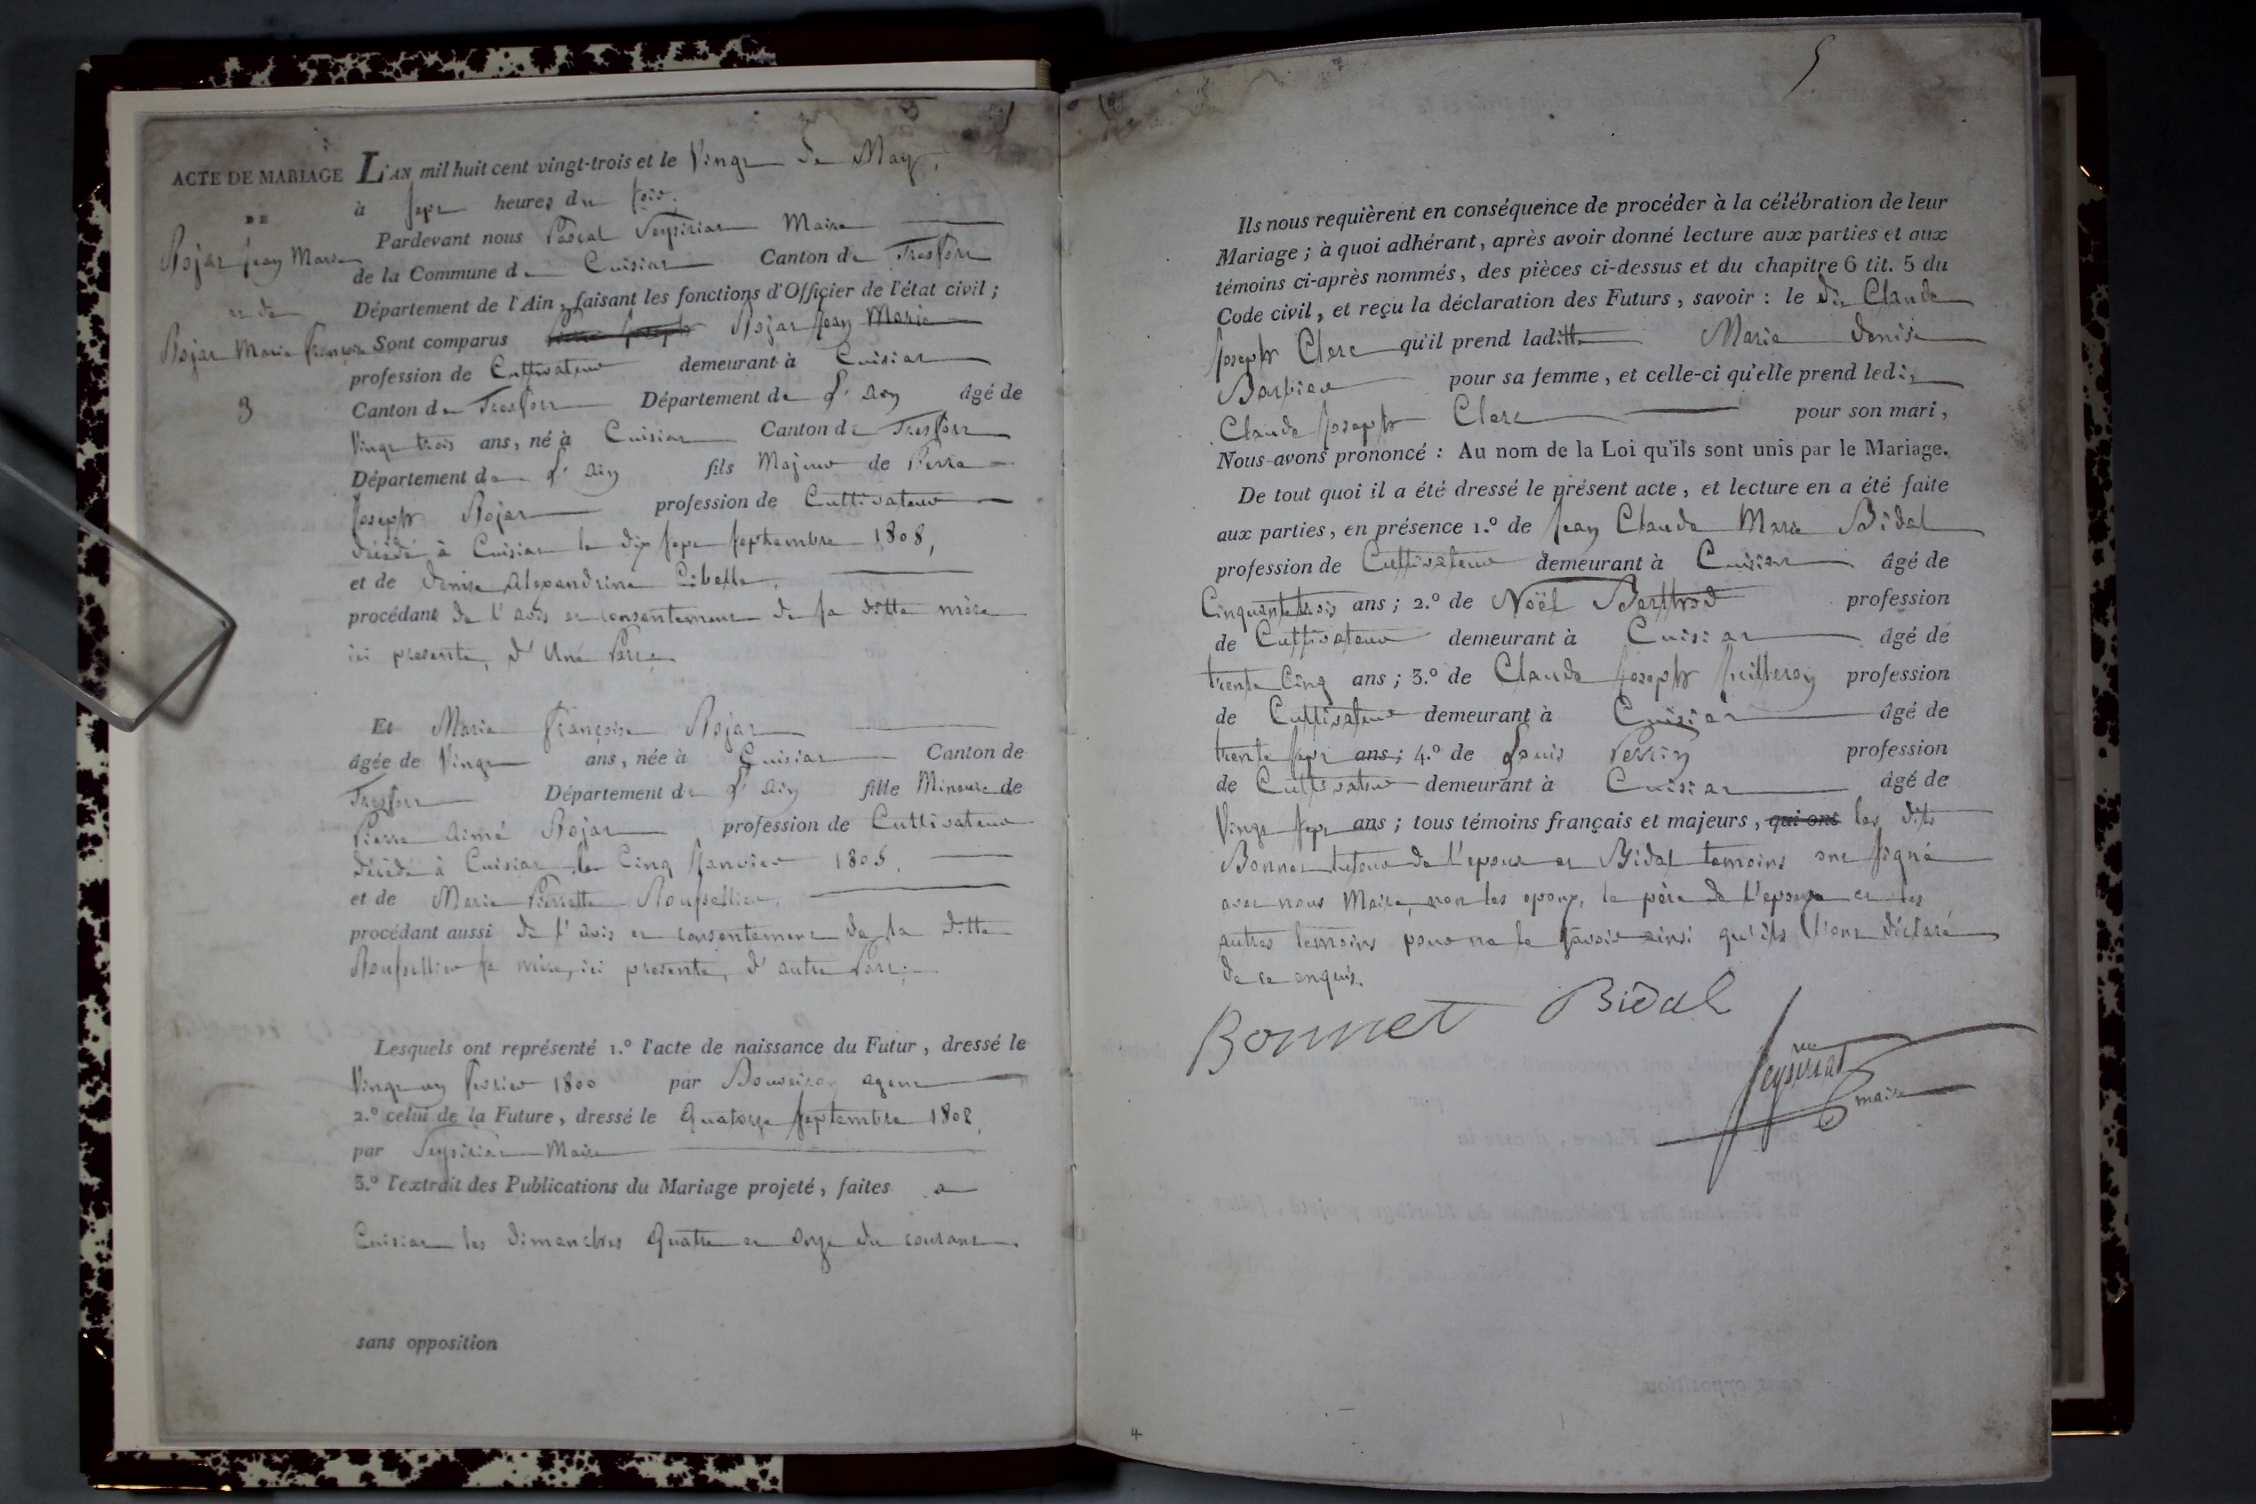 ACTE DE MARIAGE
DE
Rojat Jean Marie
et de
Rojat Marie Françoise
3
L'AN mil huit cent vingt-trois et le Vingt de May,
à sept heures du soir,
Pardevant nous Pascal Teyssiriat Maire
de la Commune de Cuisiat Canton de Treffort
Département de l'Ain, faisant les fonctions d'Officier de l'état civil ;
Sont comparus Rojat Jean Marie
profession de Cultivateur demeurant à Cuisiat
Canton de Treffort Département de L'Ain âgé de
Vingt trois ans, né à Cuisiat Canton de Treffort
Département de L'Ain fils Majeur de Pierre
Joseph Rojat profession de Cultivateur
décédé à Cuisiat le dix sept septembre 1808,
et de Denise Alexandrine
procédant de l'avis et consentement de sa ditte mère
ici presente, d'Une Part.
Et Marie Françoise Rojat
âgée de Vingt ans, née à Cuisiat Canton de
Treffort Département de L'Ain fille Mineure de
Pierre Aimé Rojat profession de Cultivateur
décédé à Cuisiat le Cinq Janvier 1805,
et de Marie Pierrette Roussellier,
procédant aussi de l'avis et consentement de la ditte
Roussellier sa mère, ici presente, d'autre Part.
Lesquels ont représenté 1.º l'acte de naissance du Futur, dressé le
Vingt un fevrier 1800 par agent
2.º celui de la Future, dressé le Quatorze septembre 1802,
par Teyssiriat Maire
3.º l'extrait des Publications du Mariage projeté, faites a
Cuisiat les dimanches Quatre et onze du courant.
sans opposition
5
Ils nous requièrent en conséquence de procéder à la célébration de leur
Mariage ; à quoi adhérant, après avoir donné lecture aux parties et aux
témoins ci-après nommés, des pièces ci-dessus et du chapitre 6 tit. 5 du
Code civil, et reçu la déclaration des Futurs, savoir : le dit Claude
Joseph Clerc qu'il prend laditte Marie Denise
Barbier pour sa femme, et celle-ci qu'elle prend ledit
Claude Joseph Clerc pour son mari,
Nous avons prononcé : Au nom de la Loi qu'ils sont unis par le Mariage.
De tout quoi il a été dressé le présent acte, et lecture en a été faite
aux parties, en présence 1.º de Jean Claude Marie Bidal
profession de Cultivateur demeurant à Cuisiat âgé de
Cinquante trois ans ; 2.º de Noël Berthod profession
de Cultivateur demeurant à Cuisiat âgé de
trente Cinq ans ; 3.º de Claude Joseph Juilleron profession
de Cultivateur demeurant à Cuisiat âgé de
trente sept ans ; 4.º de Louis Perrin profession
de Cultivateur demeurant à Cuisiat âgé de
Vingt sept ans ; tous témoins français et majeurs, qui ont les dits
Bonnet tuteur de l'epoux et Bidal temoins ont signé
avec nous Maire, non les epoux, le père de l'epouse et les
autres temoins pour ne le savoir ainsi qu'ils l'ont déclaré
de ce enquis.
Bonnet Bidal
Teyssiriat
maire
4